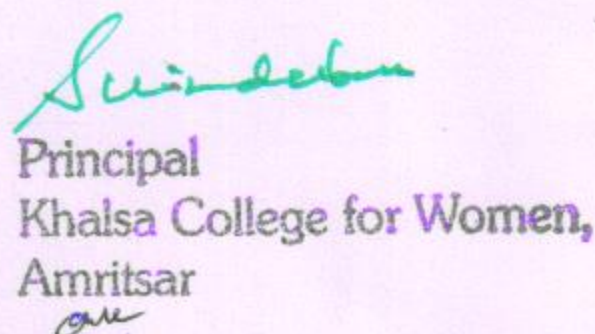 Principal
Khalsa College for Women,
Amritsar